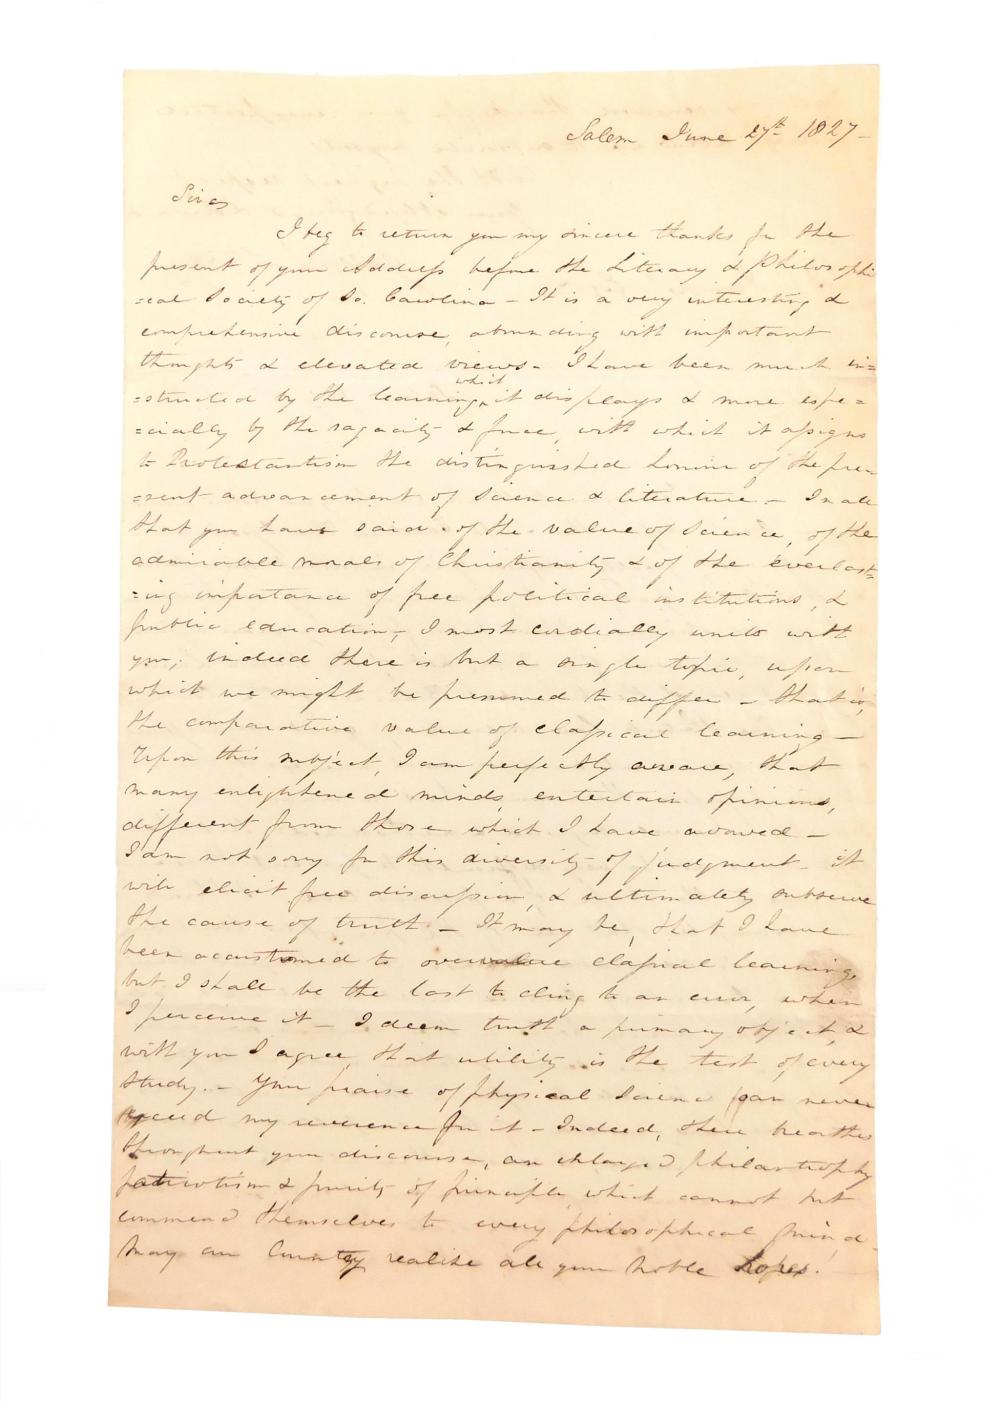 Salem June 27th 1827 -
Sir
I beg to return you my sincere thanks for the
present of your Address before the Literary & Philosophi
=cal Society of So. Carolina - It is a very interesting &
comprehensive discourse, abounding with important
thoughts & elevated views - I have been much in=
which
=structed by the learning, ^ it displays & more espe=
=cially by the sagacity & force, with which it assigns
to Protestantism the distinguished honour of the pre=
=sent advancement of Science & literature - In all
that you have said of the value of Science, of the
admirable morals of Christianity & of the everlast=
=ing importance of free political institutions, &
public education, - I most cordially unite with
you; indeed there is but a single topic, upon
which we might be presumed to differ - that is,
the comparative value of classical learning -
Upon this subject, I am perfectly aware, that
many enlightened minds, entertain opinions,
different from those which I have avowed -
I am not sorry for this diversity of judgment - it
will elicit free discussion, & ultimately subserve
the cause of truth - It may be, that I have
been accustomed to overvalue classical learning,
but I shall be the last to cling to an error, when
I perceive it - I deem truth a primary object, &
with you I agree, that utility is the test of every
study. - Your praise of physical Science can never
exceed my reverence for it - Indeed, there breathes
throughout your discourse, an enlarged philanthrophy
patriotism & purity of principle, which cannot but
commend themselves to every philosophical mind -
May our Country realise all your noble hopes!